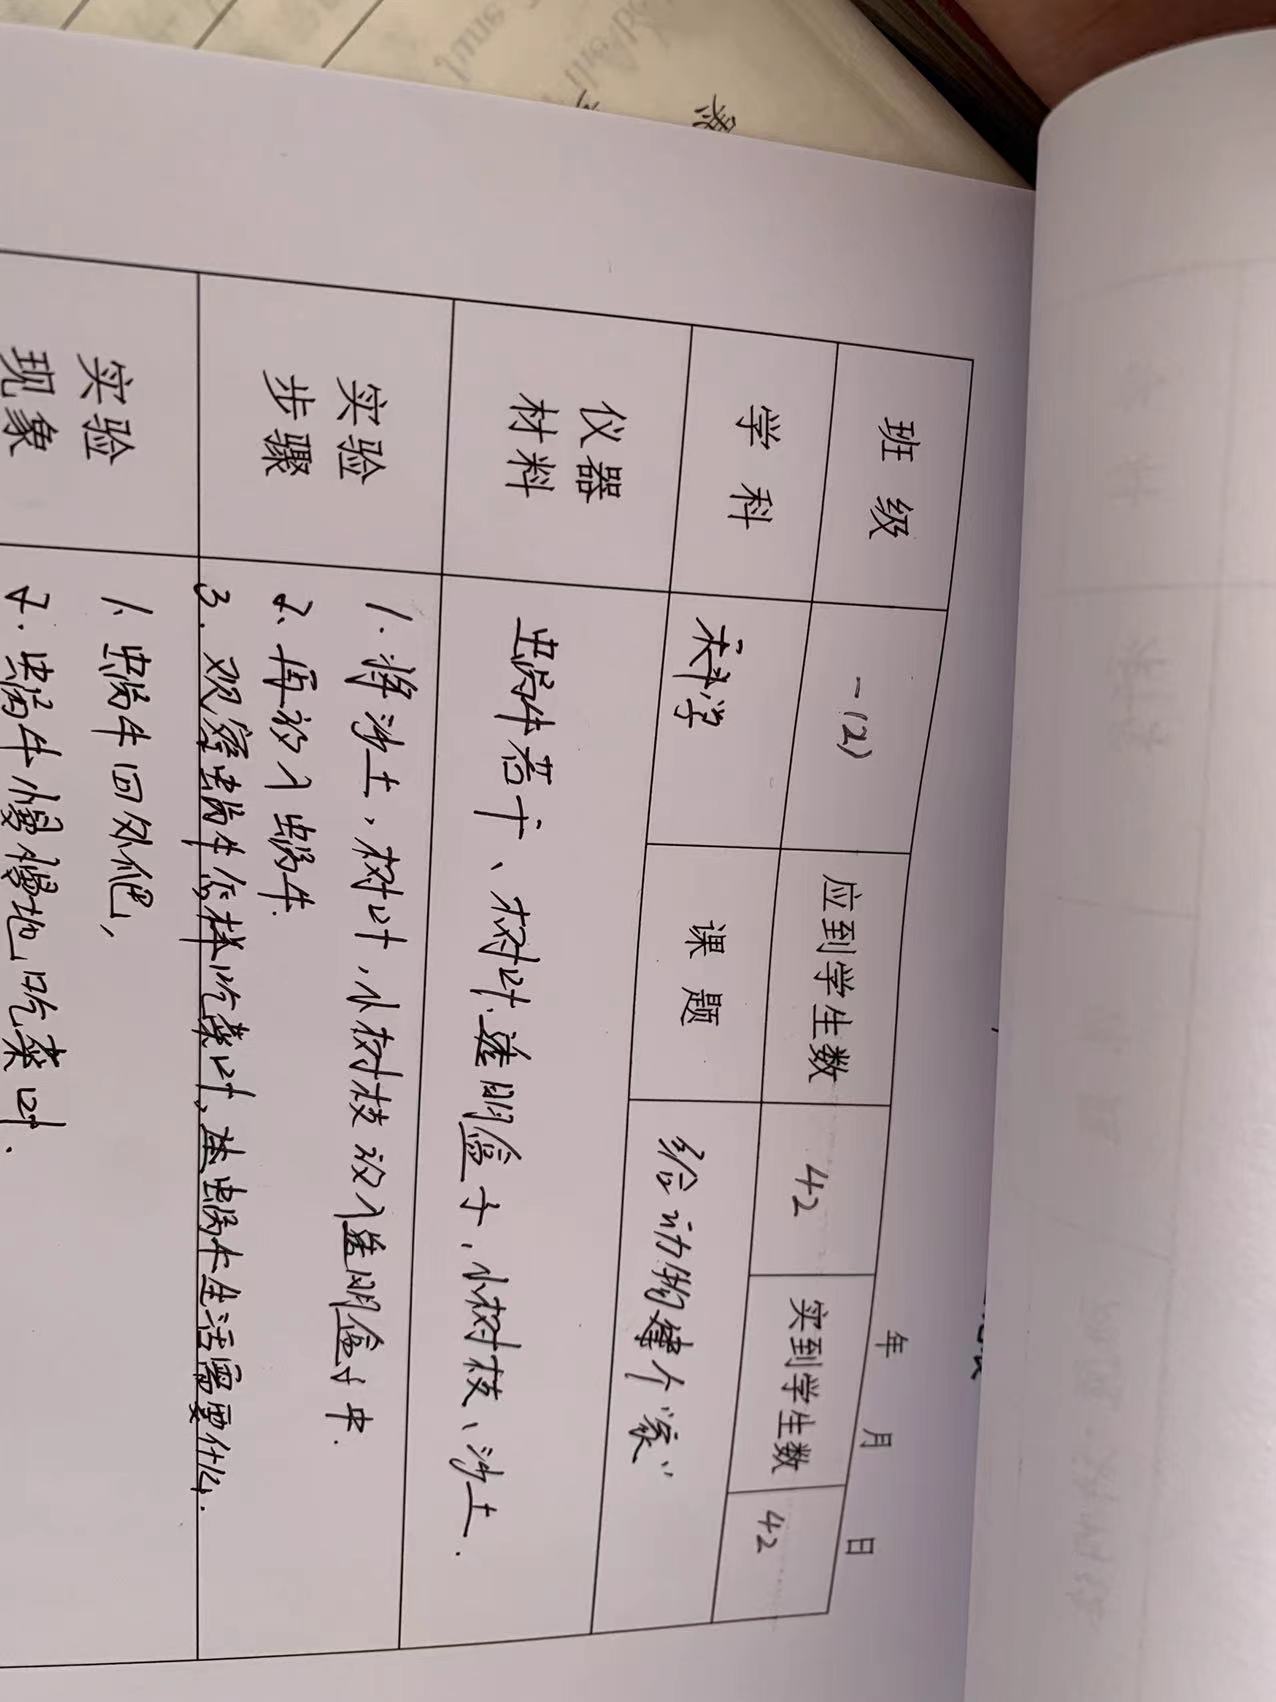 年 月 日
班 级 一(2) 应到学生数 42 实到学生数 42
学 科 科学 课 题 给动物建个“家”
仪器
材料
蜗牛若干、树叶、透明盒子、小树枝、沙土.
实验
步骤
1. 将沙土、树叶、小树枝放入透明盒子中.
2. 再放入蜗牛.
3. 观察蜗牛怎样吃菜叶, 蜗牛生活需要什么.
实验
现象
1. 蜗牛四处爬,
2. 蜗牛慢慢地吃菜叶.